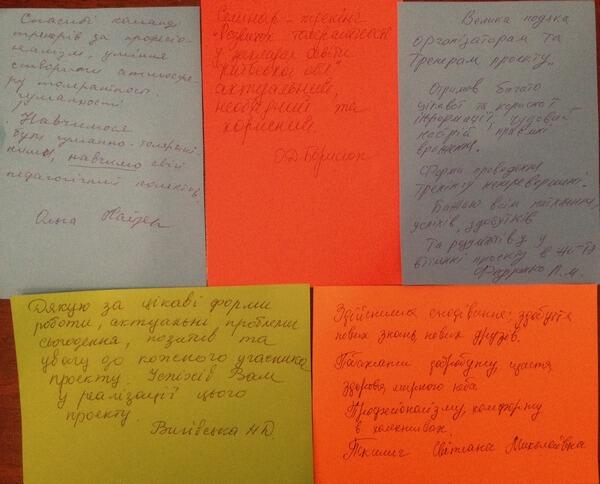 Спасибі команді
тренерів за професіо-
налізм, уміння
створити атмосфе-
ру толерантності
гуманності
Навчимося
бути гуманно-толерант-
ними, навчимо свій
педагогічний колектив.
Ольга
Семінар-тренінг
"Розвиток толерантності
у закладах освіти
Київської обл"
актуальний,
необхідний та
корисний.
Велика подяка
організаторам та
тренерам проєкту.
Отримов багато
цікавої та корисної
інформації, чудовий
настрій приємні
враження.
Форма проведення
тренінгу неперевершені.
Бажаю всім натхнення,
успіхів, здобутків
Та розуміння у
втіленні проекту в
Дякую за цікаві форми
роботи, актуальні проблеми
сьогодення, позитив та
увагу до кожного учасника
проєкту. Успіхів Вам
у реалізації цього
проєкту
Вигівська НД.
Здійснились сподівання: здобуття
нових знань, нових друзів.
Побажання добробуту щастя
здоров'я мирного неба
Професіоналізму, комфорту
в колективах.
Світлана Миколаївна